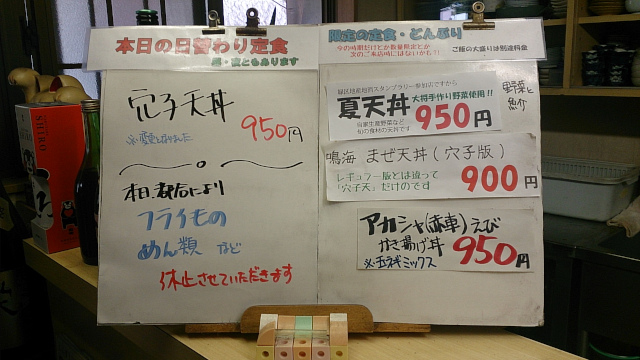 本日の日替わり定食
昼・夜ともあります
穴子天丼
950円
※変更しました
本日、都合により
フライもの
めん類 など
休止させていただきます
限定の定食・どんぶり
今の時期だけとか数量限定とか
次のご来店時にはないかも?!
ご飯の大盛りは別途料金
緑区地産地消スタンプラリー参加店ですから
夏天丼
大将手作り野菜使用!!
自家生産野菜など
旬の食材の天丼です
950円
野菜と
鳴海 まぜ天丼(穴子版)
レギュラー版とは違って
「穴子天」だけのです
900円
アカシャ(赤車)えび
かき揚げ丼
※玉ネギミックス
950円
SHIRO